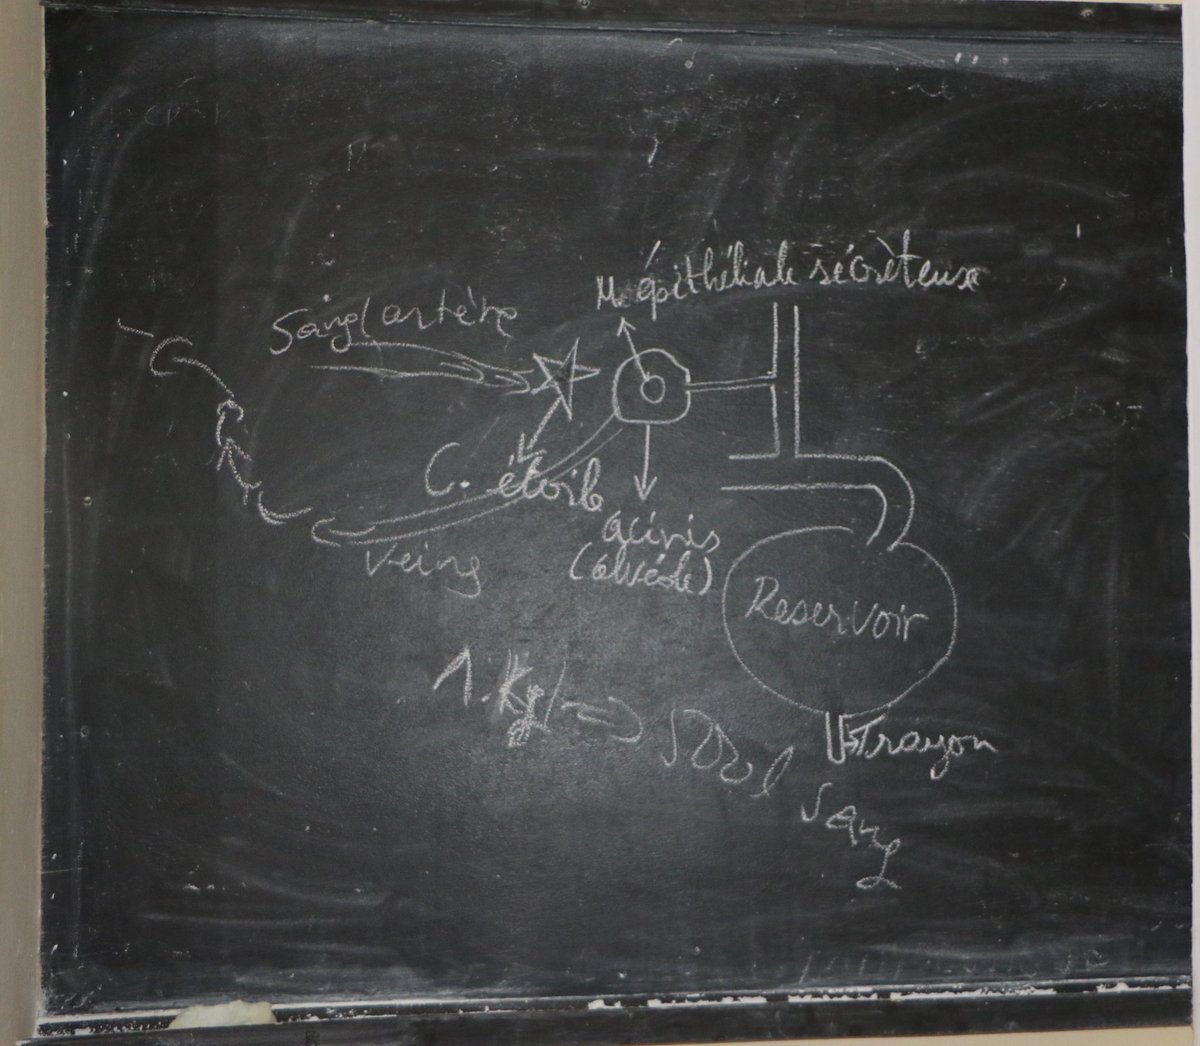 M. épithéliale sécrèteuse
Sang(artère
C. étoile
Veine
acinis
(alvéole)
Reservoir
Trayon
1.Kg/ => 500 l
Sang